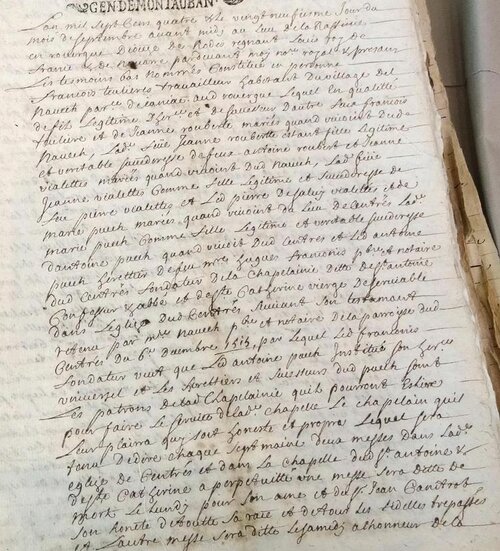 GEN DE MONTAUBAN
Lan mil sept Cens quatre & le vingt neufiesme Jour du
mois de septembre avant midy au Lieu de la
en rouergue Dioceze de Rodes regnant Louis roy de
france & de Navarre pardevant moy no.re royal & presans
Les temoins bas Nommes Constitué en personne
francois teulieres travailleur habitant du village del
Nauech par.e de en rouergue Lequel en qualitté
de fils Legitime & et de successeur Dautre feus francois
theulieres et de Jeanne rouberte mariés quand vivoint dud
Nauech, Lad. feüe Jeanne roubertte estant fille Legitime
et veritable successeresse de feus antoine roubert et Jeanne
vialettes mariés quand vivoint dud Nauech, Lad. feüe
Jeanne vialettes Comme fille Legitime et successeresse de
feu pierre vialettes et Led pierre De vialettes et de
marie puech mariés quand vivoint du Lieu de Centrés Lad.
marie puech Comme fille Legitime et veritable successeresse
dantoine puech quand vivoit Dud Centrés et Led antoine
puech herettier de feu m.re hugues francois p.bre et notaire
dud Centrés fondateur De La Chapelainie Ditte de S.t antoine
Confesseur & abbe et de S.te Catherine vierge Deservable
Dans Leglise Dud Centrés Suivant Son testamant
retenu par m.re Nauech p.bre et notaire de La parroisse dud
Centrés Du 6.e Decembre 1515, par Lequel Led francois
fondateur veut que Led antoine puech Institué Son herés
universel et Les herettiers et successeurs dud puech Soint
Les patrons de Lad. Chapelainie quils pourront Eslire
pour faire Le service de Lad. chapelle Le chapelain quils
Leur plaira quy Soit honeste et propre Lequel Sera
tenu De dire chaque Septmaine deux messes Dans Lad.
eglise de Centrés et dans La chapelle dud S.t antoine &
de S.te Catherine a perpetuitte une messe Sera Ditte de
mort Le Lundy pour Son ame et du S.r Jean
Son et de toute Sa race et de tous Les fidelles trepasses
et Lautre messe Sera Ditte Le Samedy alhonneur de La